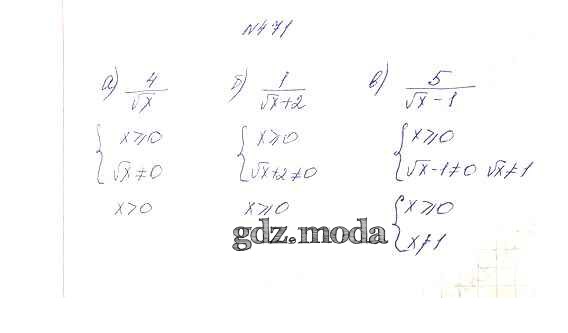 N471
а) 4/√x
{ x≥0
√x≠0
x>0
б) 1/√x+2
{ x≥0
√x+2≠0
x≥0
в) 5/√x-1
{ x≥0
√x-1≠0 √x≠1
{ x≥0
x≠1
gdz.moda